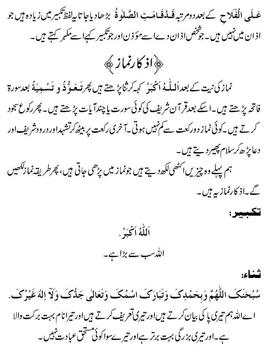 عَلَى الْفَلَاح کے بعد دو مرتبہ قَدْ قَامَتِ الصَّلٰوۃُ بڑھا دیا جاتا ہے یا لفظ تکبیر میں زیادہ ہیں جو
اذان میں نہیں ہیں۔ جو شخص اذان دے اسے مؤذن اور جو تکبیر کہے اسے مکبر کہتے ہیں۔
﴿ اذکارِ نماز ﴾
نماز کی نیت کے بعد اَللّٰہُ اَکْبَرُ کہہ کر ثنا پڑھتے ہیں پھر تَعَوُّذ و تَسْمِیَۃ کے بعد سورۃ
فاتحہ پڑھتے ہیں۔ اسکے بعد قرآن شریف کی کوئی سورت یا چند آیات پڑھتے ہیں۔ پھر رکوع سجود
کرتے ہیں۔ کوئی نماز دو رکعت سے کم نہیں ہوتی۔ آخری رکعت پر بیٹھ کر تشہد اور درود شریف اور
دعا پڑھ کر سلام پھیر دیتے ہیں۔
ہم پہلے وہ چیزیں اکٹھی لکھ دیتے ہیں، جو نماز میں پڑھی جاتی ہیں، پھر طریقہ نماز لکھیں
گے۔ اذکار نماز یہ ہیں۔
تکبیر:
اَللّٰہُ اَکْبَرُ.
اللہ سب سے بڑا ہے۔
ثناء:
سُبْحٰنَکَ اللّٰھُمَّ وَبِحَمْدِکَ وَتَبَارَکَ اسْمُکَ وَتَعَالٰی جَدُّکَ وَلَا اِلٰہَ غَیْرُکَ.
اے اللہ ہم تیری پاکی بیان کرتے ہیں اور تیری تعریف کرتے ہیں اور تیرا نام بہت برکت والا
ہے، اور تیری بزرگی بہت برتر ہے اور تیرے سوا کوئی مستحق عبادت نہیں۔